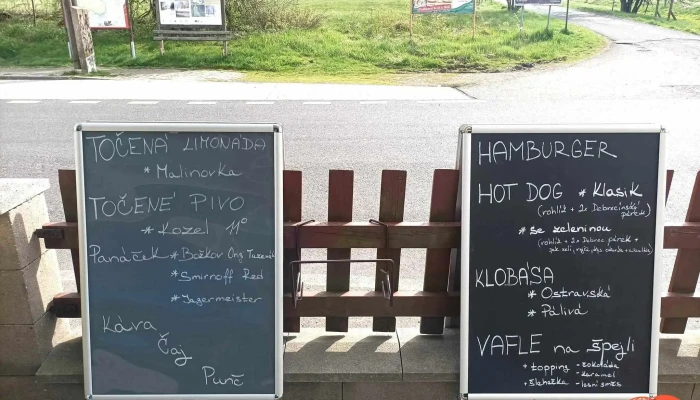 TOČENÁ LIMONÁDA
* Malinovka
TOČENÉ PIVO
* Kozel 11°
Panáček * Božkov Orig Tuzemák
* Smirnoff Red
* Jagermeister
Káva
Čaj
Punč
HAMBURGER
HOT DOG * Klasik
(rohlík + 2x Debrecínský párek)
* se zeleninou
(rohlík + 2x Debrec párek +
KLOBÁSA
* Ostravská
* Pálivá
VAFLE na špejli
+ topping - čokoláda
- karamel
+ šlehačka - lesní směs